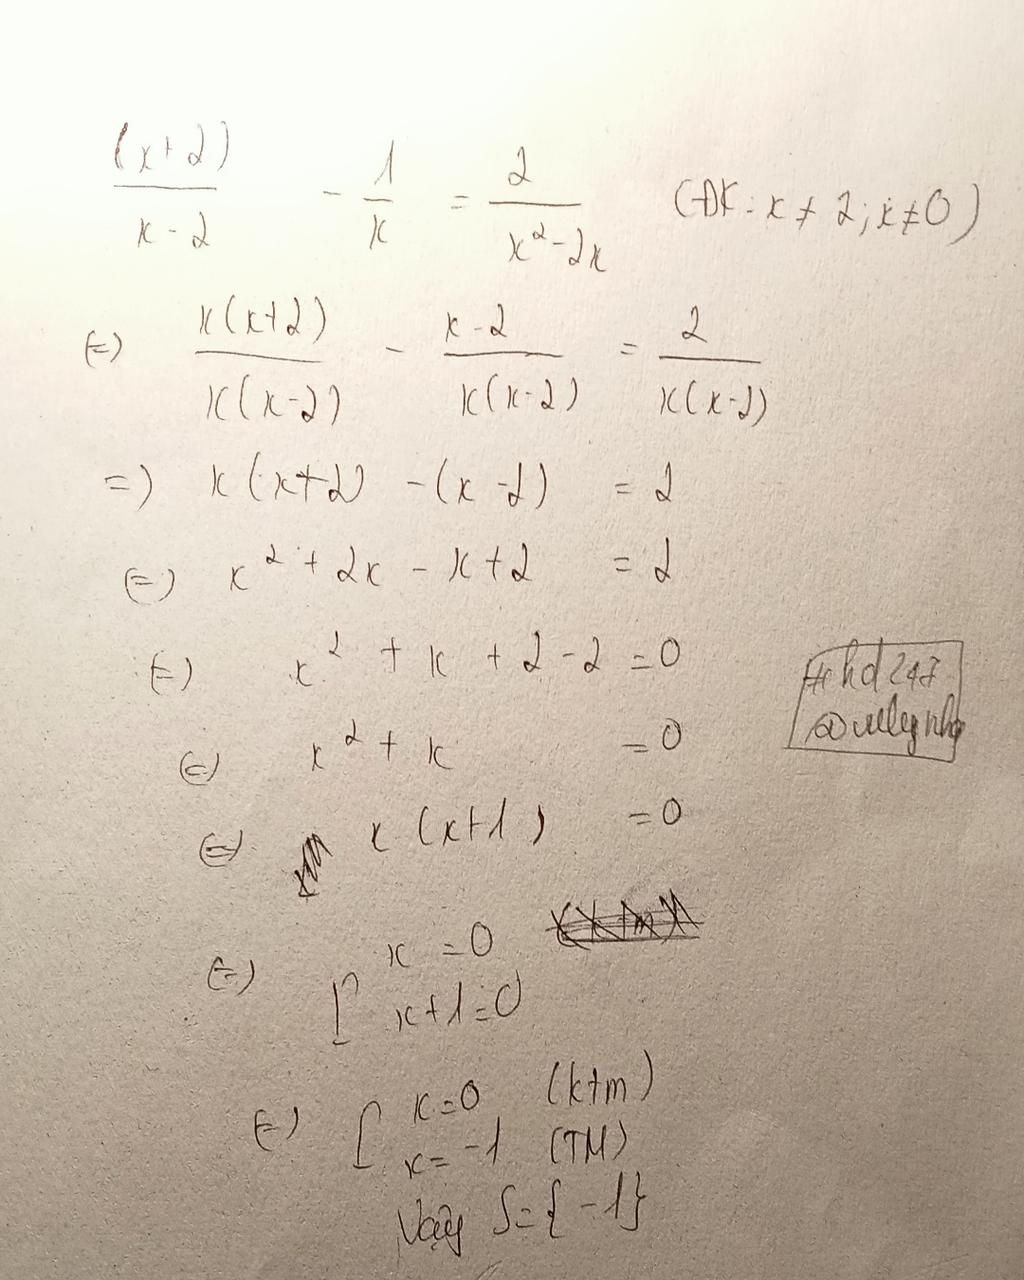 (x+2)/(x-2) - 1/x = 2/(x²-2x) (ĐK: x ≠ 2; x ≠ 0)
(=) x(x+2)/x(x-2) - x-2/x(x-2) = 2/x(x-2)
=) x(x+2) -(x-2) = 2
(=) x² + 2x - x+2 = 2
(=) x² + x + 2-2 =0
(=) x² + x =0
(=) x (x+1) =0
(=) [ x =0
x+1=0
(=) [ x=0 (ktm)
x= -1 (TM)
Vậy S={-1}
#hd247